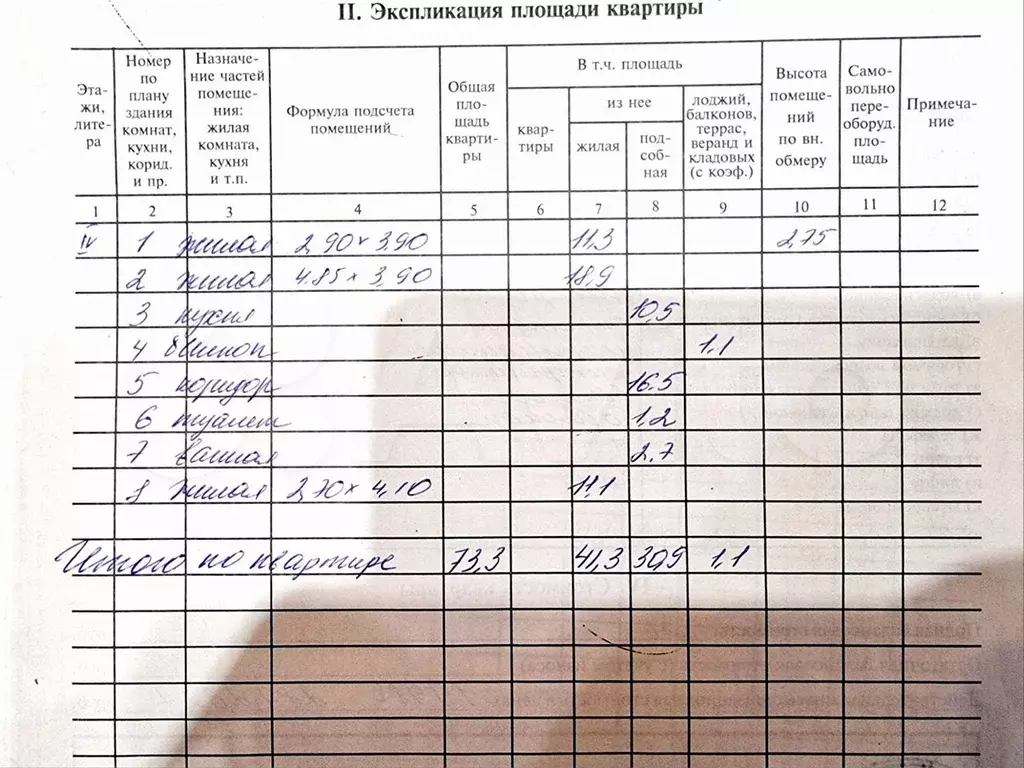 II. Экспликация площади квартиры
Эта-
жи,
лите-
ра
Номер
по
плану
здания
комнат,
кухни,
корид.
и пр.
Назначе-
ние частей
помеще-
ния:
жилая
комната,
кухня
и т.п.
Формула подсчета
помещений
Общая
пло-
щадь
кварти-
ры
В т.ч. площадь
квар-
тиры
из нее
жилая
под-
соб-
ная
лоджий,
балконов,
террас,
веранд и
кладовых
(с коэф.)
Высота
помеще-
ний
по вн.
обмеру
Само-
вольно
пере-
оборуд.
пло-
щадь
Примеча-
ние
1 2 3 4 5 6 7 8 9 10 11 12
IV 1 жилая 2,90 x 3,90 11,3 2,75
2 жилая 4.85 x 3,90 18,9
3 кухня 10,5
4 балкон 1,1
5 коридор 16.5
6 туалет 1,2
7 ванная 2.7
8 жилая 2,70 x 4,10 11,1
Итого по квартире 73,3 41,3 30,9 1,1